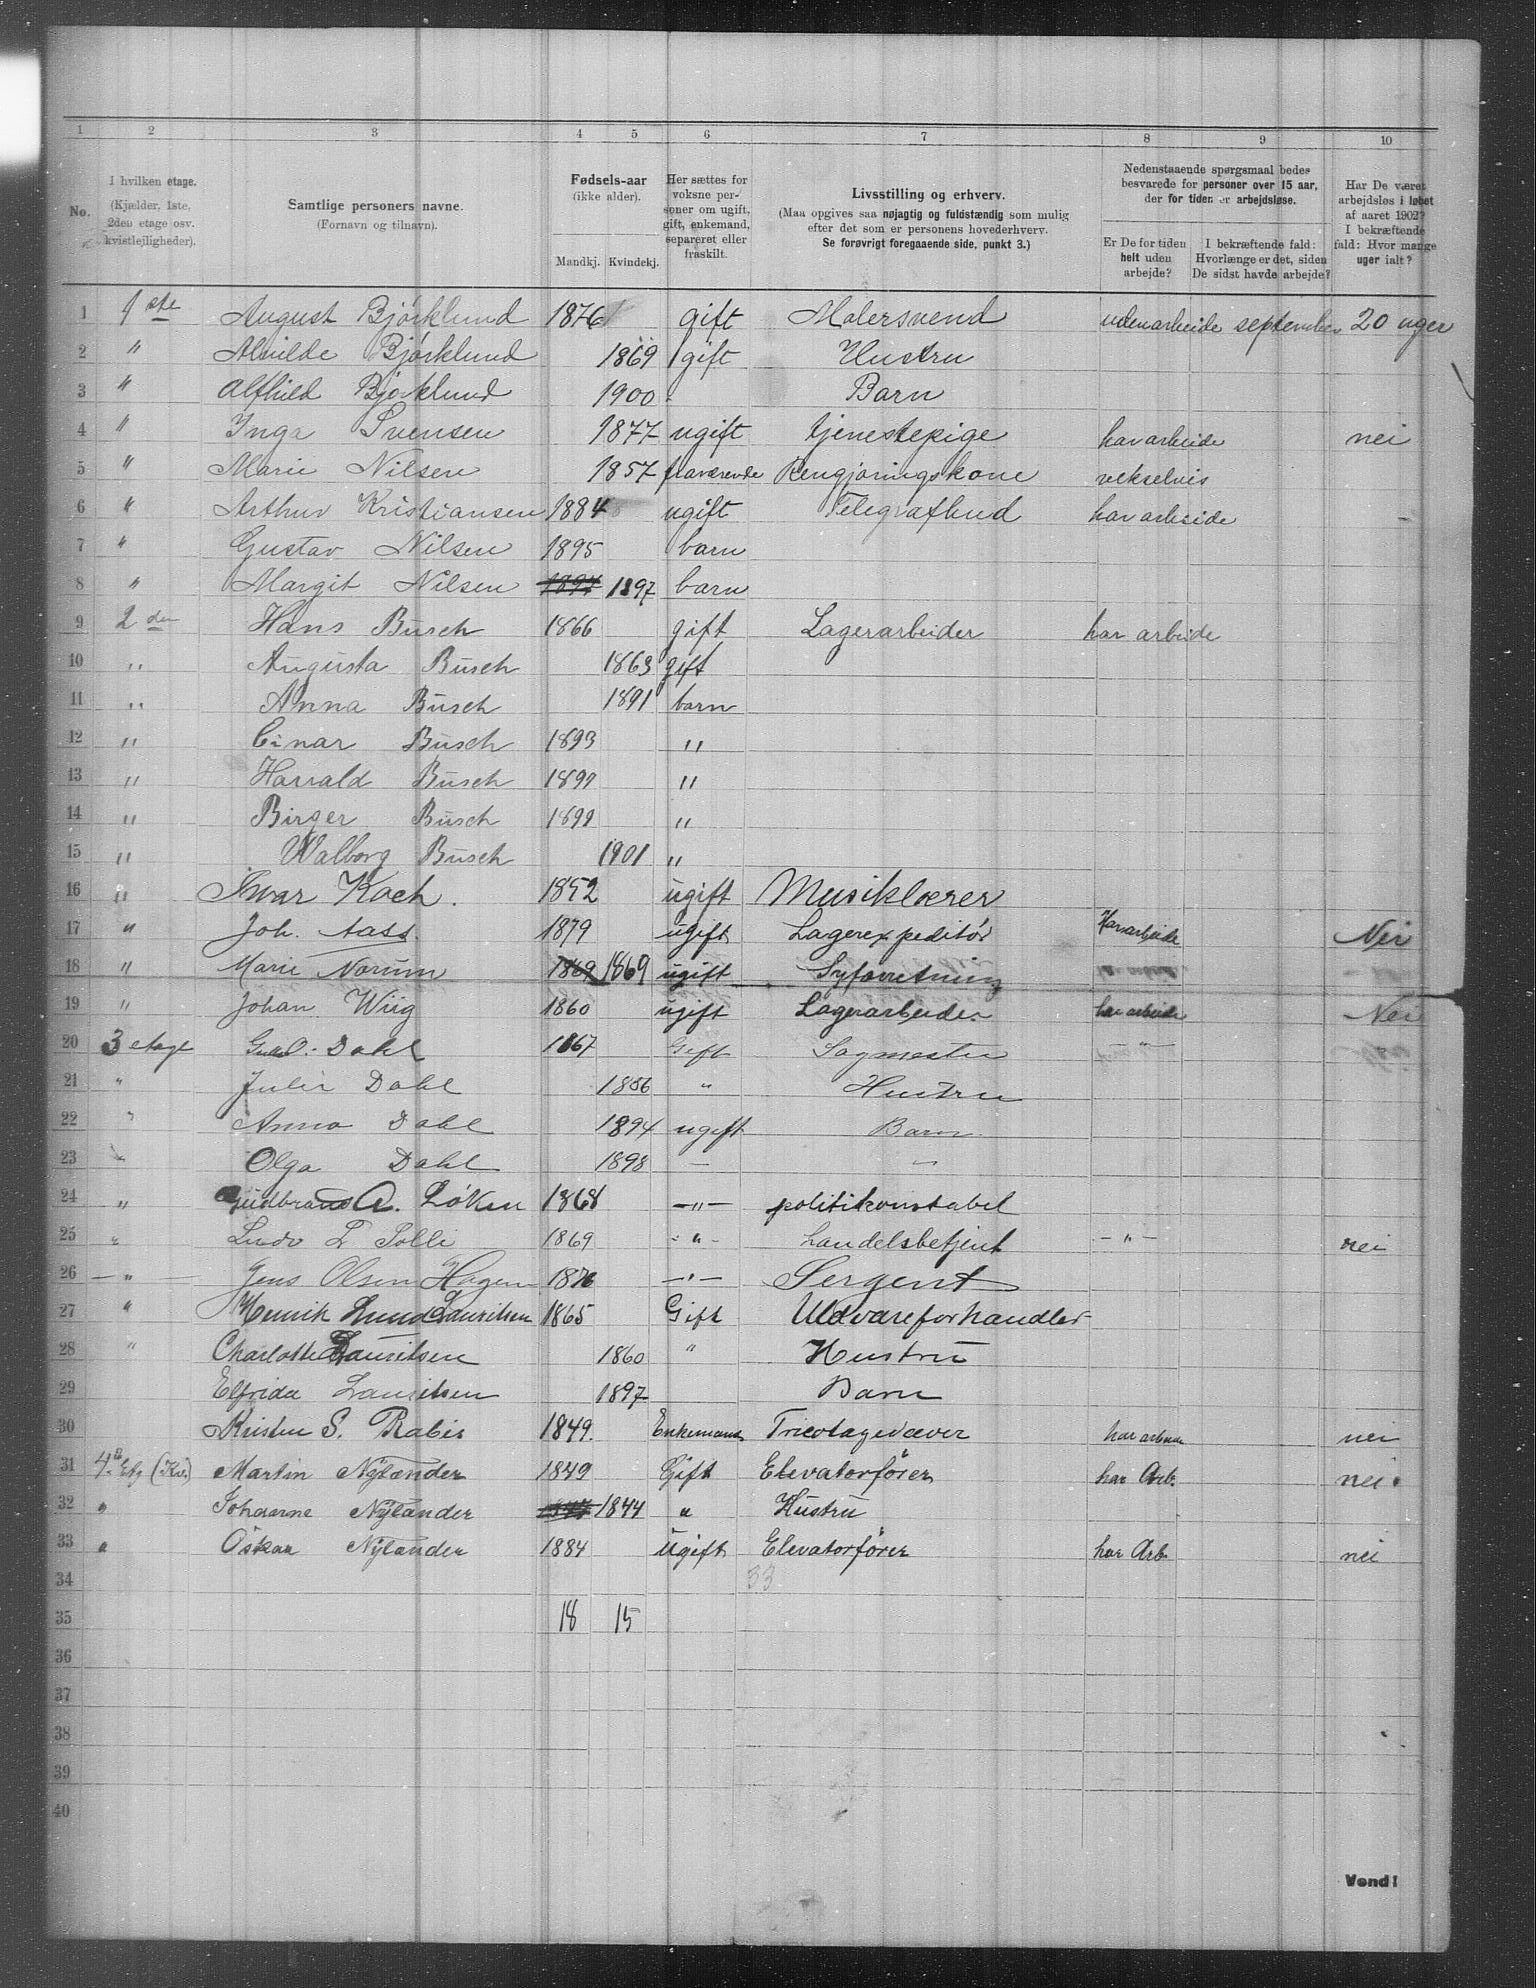 1 2 3 4 5 6 7 8 9 10
No.
I hvilken etage. (Kjælder, 1ste, 2den etage osv. kvistlejligheder).
Samtlige personers navne. (Fornavn og tilnavn).
Fødsels-aar (ikke alder). Mandkj. Kvindekj.
Her sættes for voksne personer om ugift, gift, enkemand, separeret eller fraskilt.
Livsstilling og erhverv. (Maa opgives saa nøjagtig og fuldstændig som mulig efter det som er personens hovederhverv. Se forøvrigt foregaaende side, punkt 3.)
Nedenstaaende spørgsmaal bedes besvarede for personer over 15 aar, der for tiden er arbejdsløse.
Er De for tiden helt uden arbejde?
I bekræftende fald: Hvorlænge er det, siden De sidst havde arbejde?
Har De været arbejdsløs i løbet af aaret 1902? I bekræftende fald: Hvor mange uger ialt?
1 1ste August Bjørklund 1876 gift Malersvend uden arbeide september 20 uger
2 " Alvilde Bjørklund 1869 gift Hustru
3 " Alfhild Bjørklund 1900 - Barn
4 " Inga Svensen 1877 ugift tjenestepige har arbeide nei
5 " Marie Nilsen 1857 fraværende Rengjøringskone vekselvis
6 " Arthur Kristiansen 1884 ugift Telegrafbud har arbeide -
7 " Gustav Nilsen 1895 barn
8 " Margit Nilsen 1897 1897 barn
9 2den Hans Busch 1866 gift Lagerarbeider har arbeide
10 " Augusta Busch 1863 gift
11 " Anna Busch 1891 barn
12 " Einar Busch 1893 "
13 " Harrald Busch 1897 "
14 " Birger Busch 1899 "
15 " Walborg Busch 1901 "
16 " Ivar Koch. 1852 ugift Musiklærer
17 " Joh. Aass. 1879 ugift Lagerexpeditør Har arbeide Nei
18 " Marie Norum 1869 1869 ugift Syforretning
19 " Johan Wiig 1860 ugift Lagerarbeider har arbeide Nei
20 3 etage Dahl 1867 Gift Sagmester - " -
21 " Julie Dahl 1856 " Hustru
22 " Anna Dahl 1894 ugift Barn
23 " Olga Dahl 1898 - "
24 " Gudbrand A. Løken 1868 - " - politikonstabel
25 " Ludv L Polli 1869 - " - handelsbetjent - " - nei
26 - " - Jens Olsen Hagen 1876 - " - Sergent
27 " Henrik Lund Lauritsen 1865 Gift Uldvareforhandler
28 " Charlotte Lauritsen 1860 " Hustru
29 Elfrida Lauritsen 1897 Barn
30 Kristen S. Rabis 1849. Enkemand Tricotagevæver har arbeide nei
31 4de Etg (Kv.) Martin Nylander 1849 Gift Elevatorfører har Arb. nei.
32 " Johanne Nylander 1844 " Hustru
33 " Oskar Nylander 1884 ugift Elevatorfører har Arb. nei
34 33
35 18 15
36
37
38
39
40
Vend!